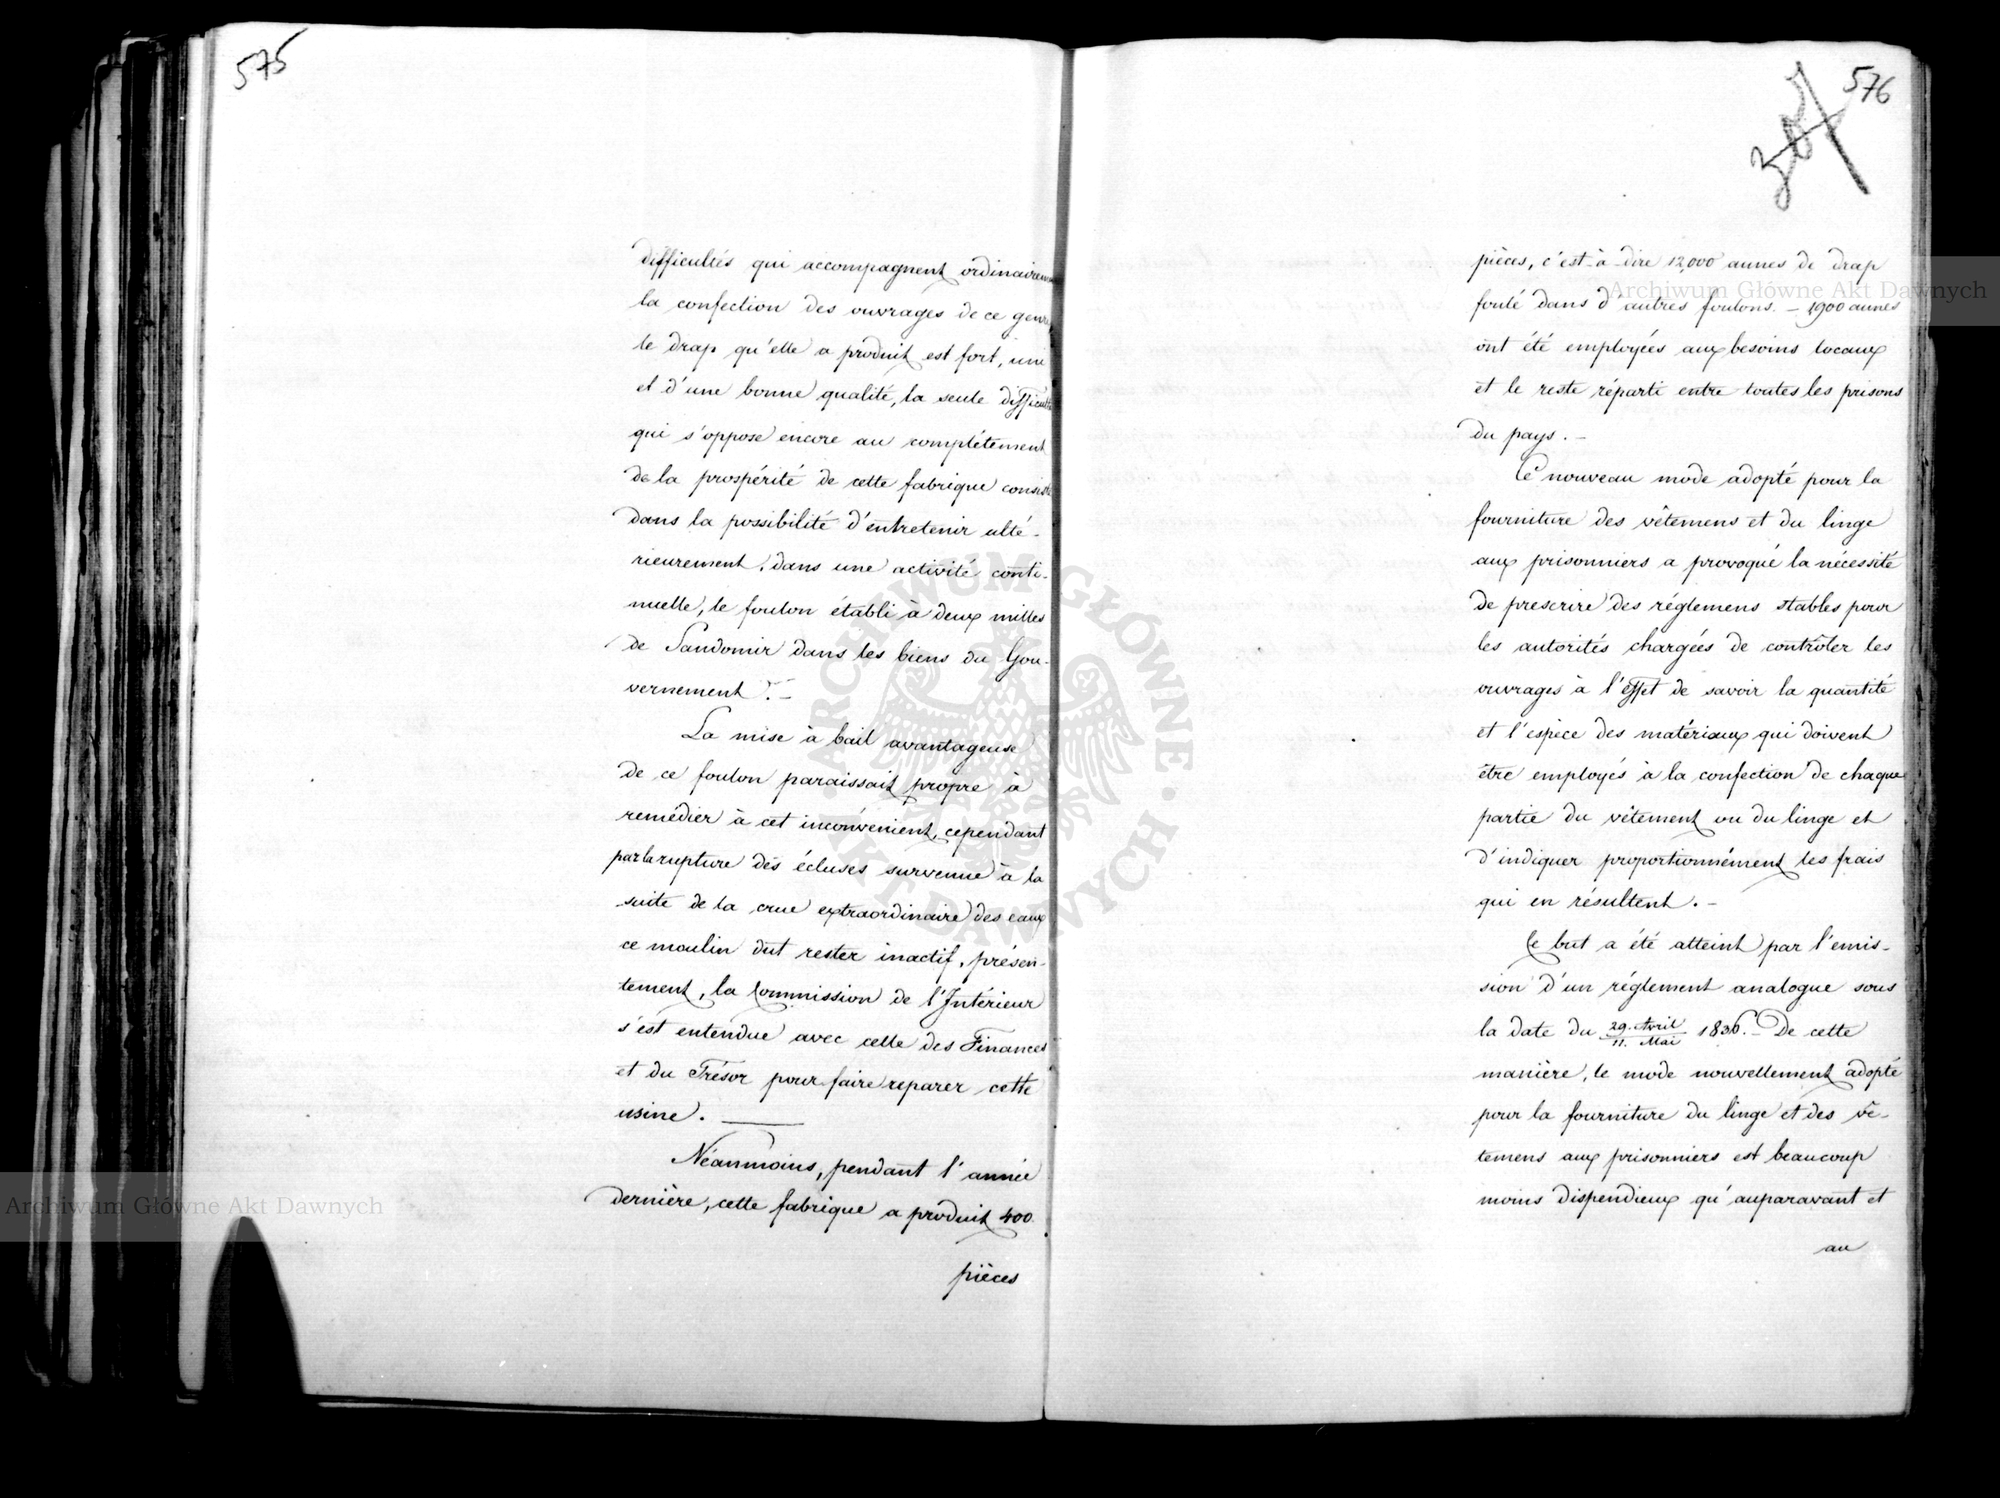 575
difficultés qui accompagnent ordinairem
la confection des ouvrages de ce genre,
le drap qu'elle a produit est fort, uni
et d'une bonne qualité, la seule difficulté
qui s'oppose encore au complétement
de la prospérité de cette fabrique consiste
dans la possibilité d'entretenir ulté-
rieurement, dans une activité conti-
nuelle, le foulon établi à deux milles
de Sandomir dans les biens du Gou-
vernement. —
La mise à bail avantageuse
de ce foulon paraissait propre à
remédier à cet inconvenient, cependant
par la rupture des écluses survenue à la
suite de la crue extraordinaire des eaux
ce moulin dut rester inactif, présen-
tement, la Commission de l'Intérieur
s'est entendue avec celle des Finances
et du Trésor pour faire reparer cette
usine. —
Néanmoins, pendant l'année
dernière, cette fabrique a produit 400
pièces
576
367
pièces, c'est-à-dire 12,000 aunes de drap
foulé dans d'autres foulons. — 1900 aunes
ont été employées aux besoins locaux
et le reste réparti entre toutes les prisons
du pays. —
Ce nouveau mode adopté pour la
fourniture des vêtemens et du linge
aux prisonniers a provoqué la nécessité
de prescrire des réglemens stables pour
les autorités chargées de contrôler les
ouvrages à l'effet de savoir la quantité
et l'espèce des matériaux qui doivent
être employés à la confection de chaque
partie du vêtement ou du linge et
d'indiquer proportionnément les frais
qui en résultent. —
Ce but a été atteint par l'emis-
sion d'un réglement analogue sous
la date du 29. Avril / 11. Mai 1836. — De cette
manière, le mode nouvellement adopté
pour la fourniture du linge et des vê-
temens aux prisonniers est beaucoup
moins dispendieux qu'auparavant et
au
Archiwum Główne Akt Dawnych
Archiwum Główne Akt Dawnych
ARCHIWUM GŁÓWNE · AKT DAWNYCH ·